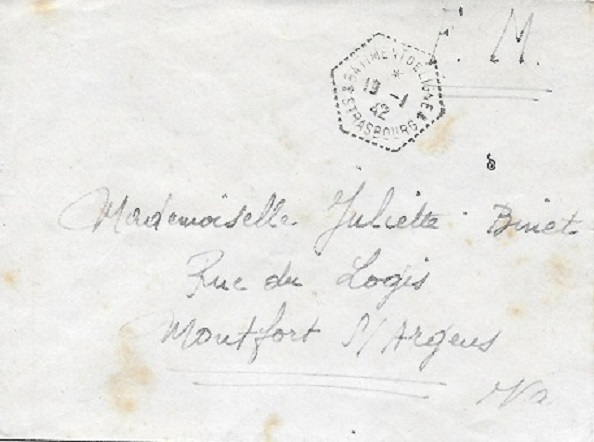 F. M.
BATIMENT DE LIGNE
*
19 -1
42
STRASBOURG
Mademoiselle Juliette Binet
Rue du Logis
Montfort S/Argens
Var